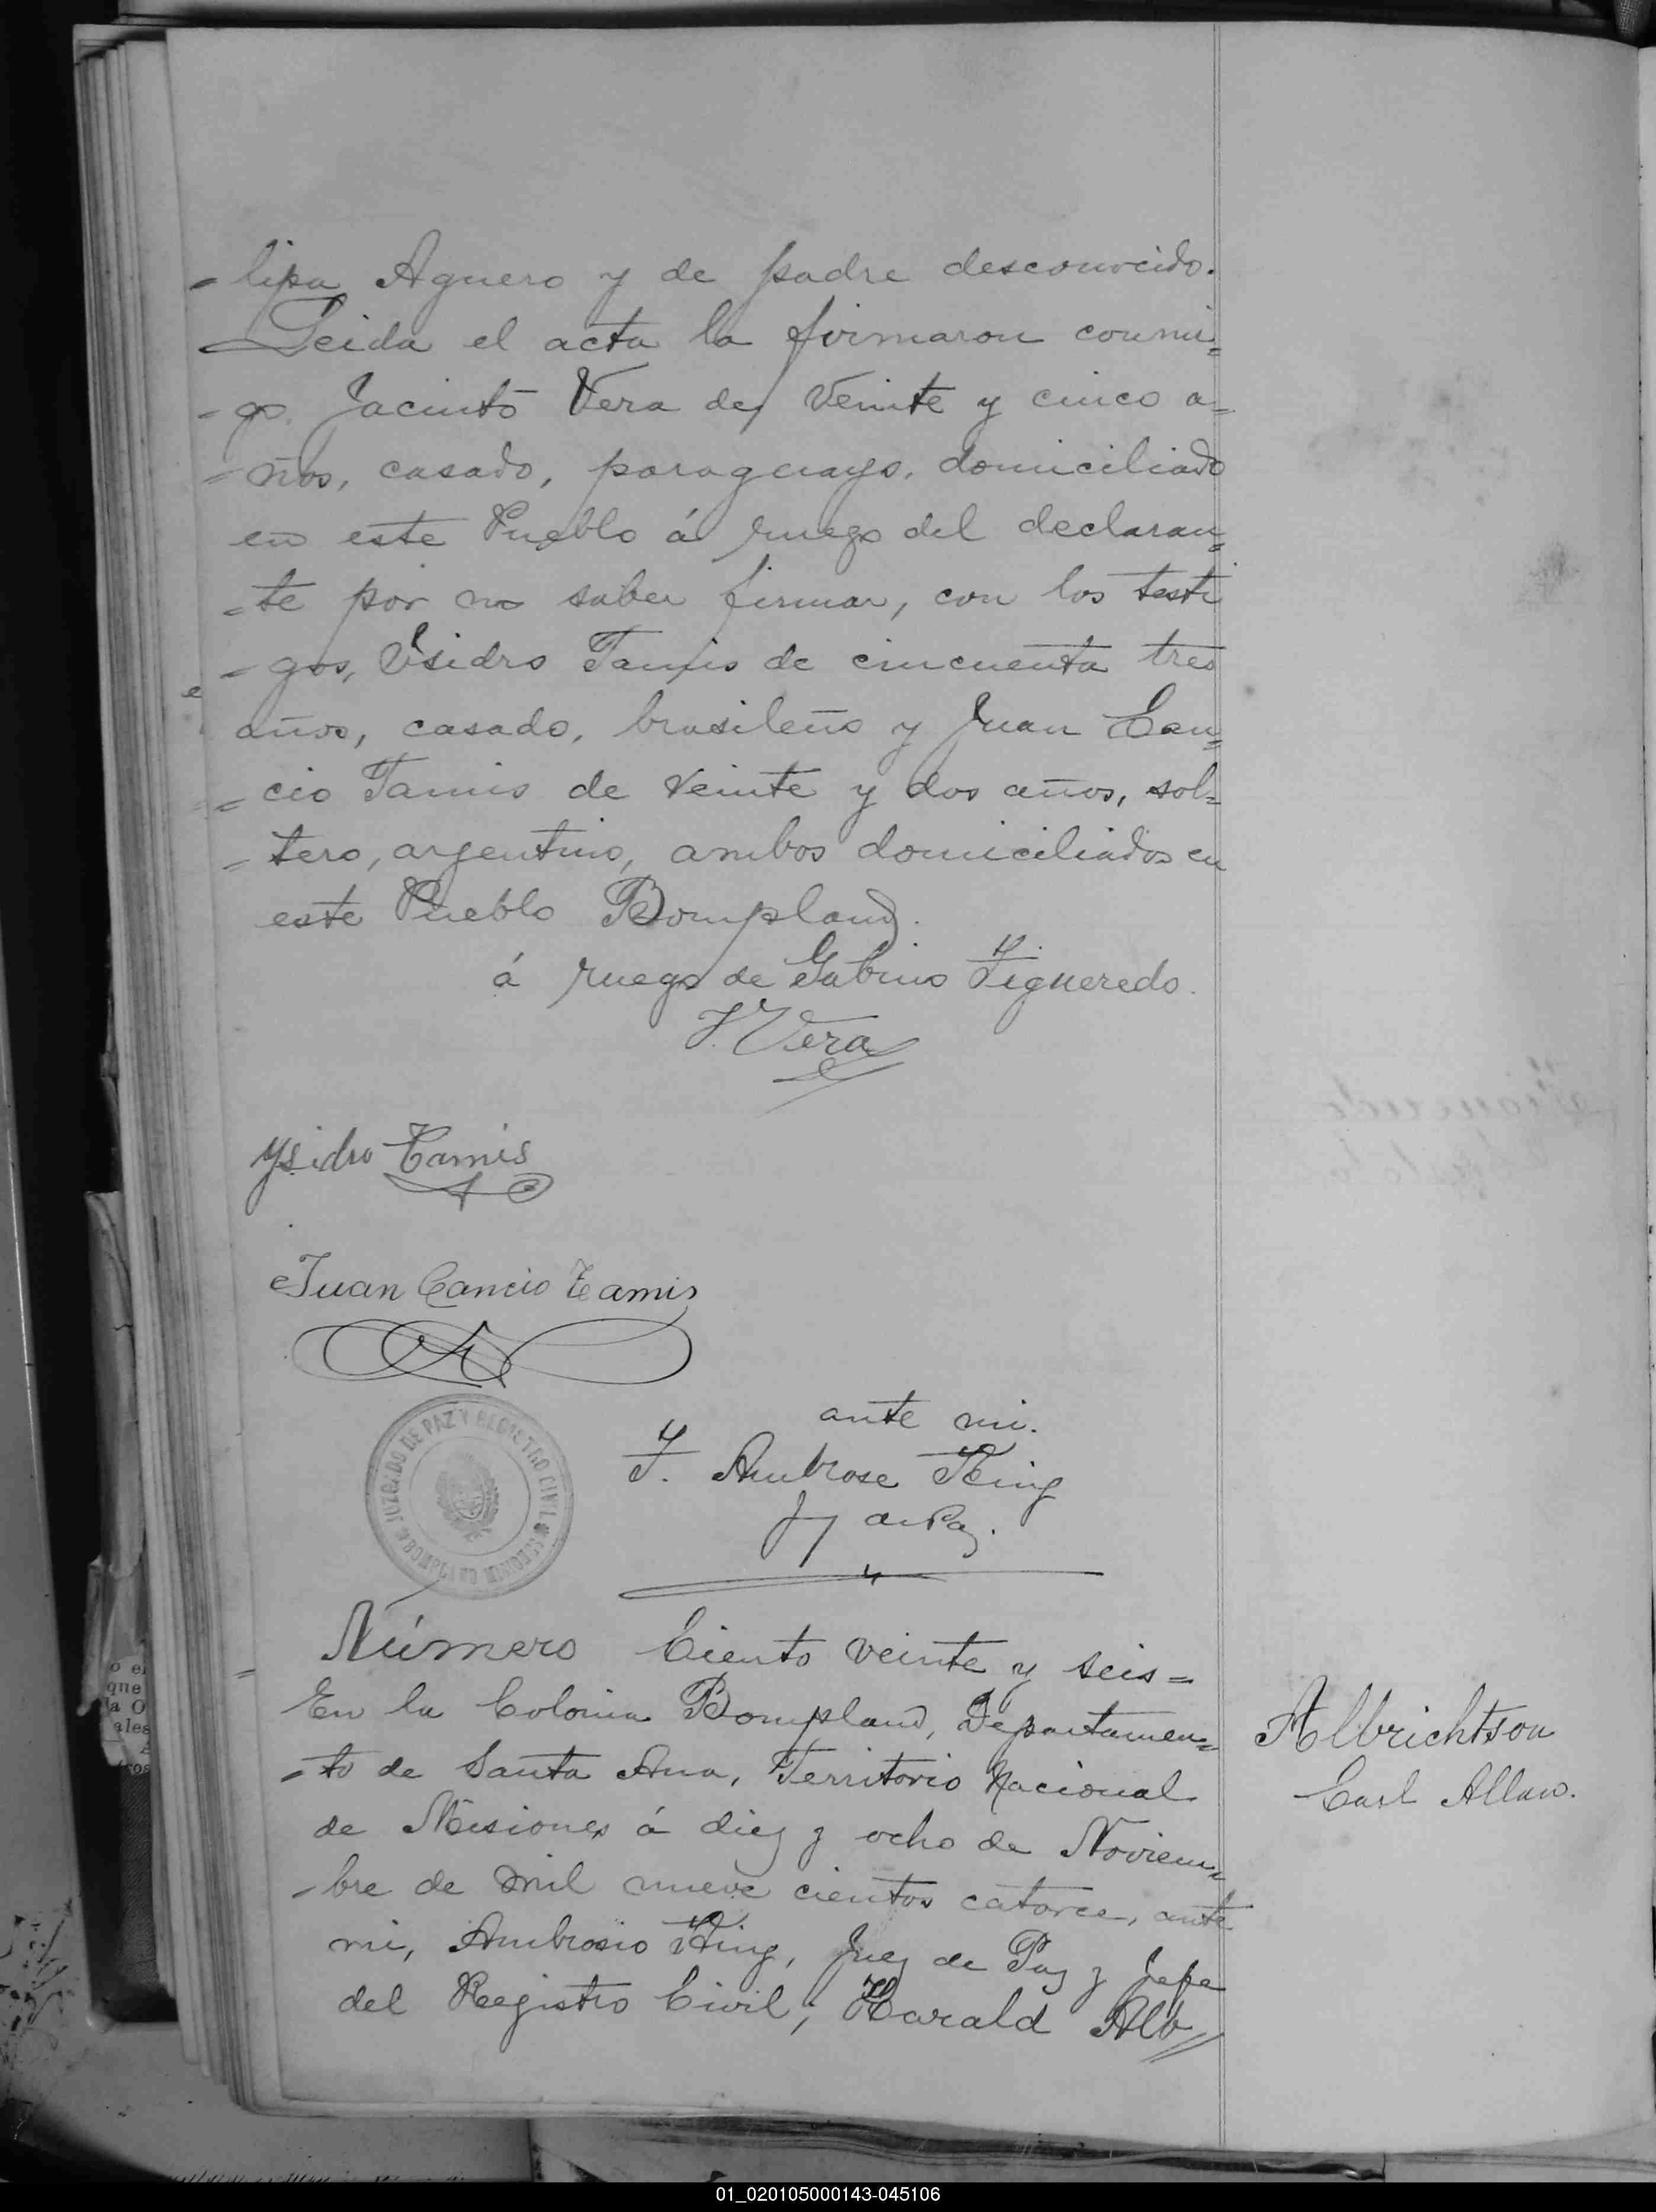 - lipa Aguero y de padre desconocido.
Leida el acta la firmaron conmi=
- go. Jacinto Vera de veinte y cinco a=
- ños, casado, paraguayo, domiciliado
en este Pueblo á ruego del declaran=
- te por no saber firmar, con los testi
- gos, Isidro Tamis de cincuenta tres
años, casado, brasileño y Juan Can=
= cio Tamis de veinte y dos años, sol=
- tero, argentino, ambos domiciliados en
este Pueblo Bompland.
á ruego de Gabino Figueredo.
J. Vera
Ysidro Tamis
Juan Cancio Tamis
ante mi.
F. Ambrose King
Juez de Paz.
JUZGADO DE PAZ Y REGISTRO CIVIL
BOMPLAND MISIONES
Número Ciento veinte y seis=
Albrichtson
Earl Allan.
En la Colonia Bompland, Departamen=
- to de Santa Ana, Territorio Nacional
de Misiones á diez y ocho de Noviem=
- bre de mil nueve cientos catorce, ante
mi, Ambrosio King, Juez de Paz y Jefe
del Registro Civil; Harald Alb
01_020105000143-045106